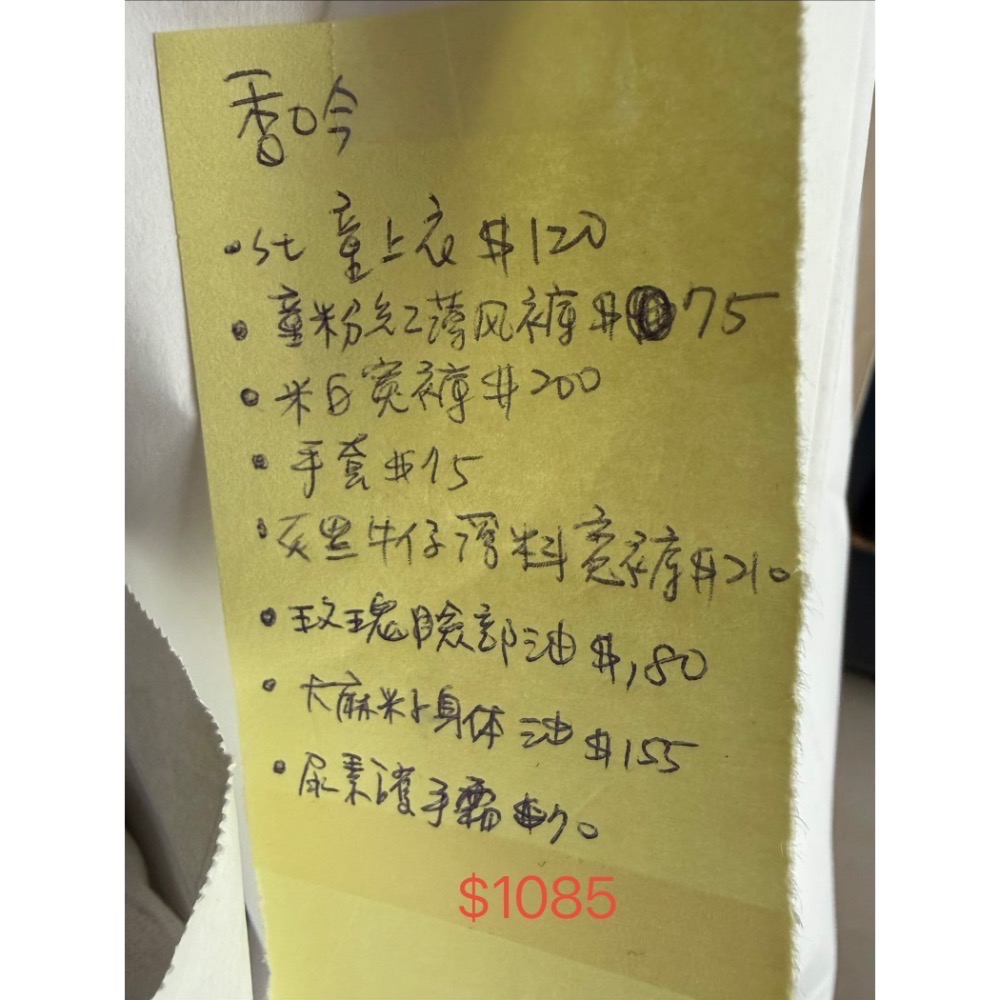 香吟
·st 童上衣 $120
·童粉红薄风褲 $75
·米白宽褲 $200
·手套 $75
·灰黑牛仔薄料宽褲 $210
·玫瑰臉部油 $180
·大麻籽身体油 $155
·尿素護手霜 $70
$1085